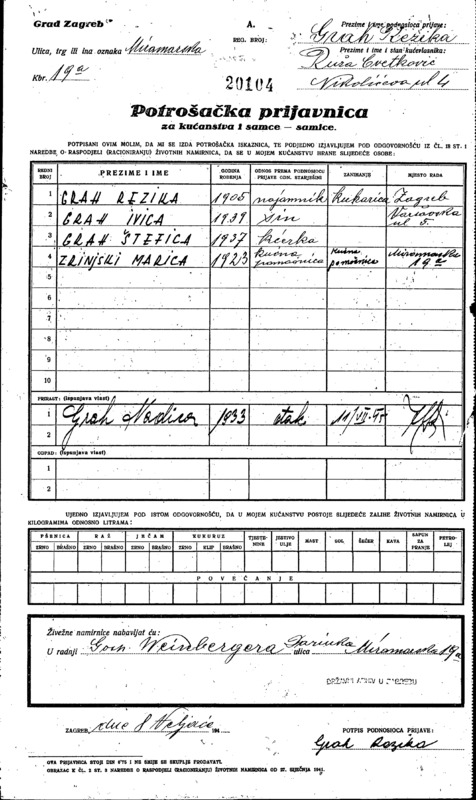 Grad Zagreb
A.
REG. BROJ:
20104
Prezime i ime podnosioca prijave:
Grah Rezika
Ulica, trg ili ina oznaka Miramarska
Prezime i ime i stan kućevlasnika:
Ruža Cvetković
Kbr. 19a
Nikolićeva ul 4
Potrošačka prijavnica
za kućanstva i samce — samice.
POTPISANI OVIM MOLIM, DA MI SE IZDA POTROŠAČKA ISKAZNICA, TE PODJEDNO IZJAVLJUJEM POD ODGOVORNOŠĆU IZ ČL. 18 ST. 1
NAREDBE O RASPODJELI (RACIONIRANJU) ŽIVOTNIH NAMIRNICA, DA SE U MOJEM KUĆANSTVU HRANE SLIJEDEĆE OSOBE:
REDNI BROJ PREZIME I IME GODINA ROĐENJA ODNOS PREMA PODNOSIOCU PRIJAVE ODN. STARJEŠINI ZANIMANJE MJESTO RADA
1 GRAH REZIKA 1905 najamnik Kuharica Zagreb
2 GRAH IVICA 1939 sin Varšavska ul 5.
3 GRAH ŠTEFICA 1937 kćerka
4 ZRINJSKI MARICA 1923 kućna pomoćnica kućna pomoćnica Miramarska 19a
5
6
7
8
9
10
PRIRAST: (ispunjava vlast)
1 Grah Nadica 1933
2
OTPAD: (ispunjava vlast)
1
2
UJEDNO IZJAVLJUJEM POD ISTOM ODGOVORNOŠĆU, DA U MOJEM KUĆANSTVU POSTOJE SLIJEDEĆE ZALIHE ŽIVOTNIH NAMIRNICA U
KILOGRAMIMA ODNOSNO LITRAMA:
PŠENICA RAŽ JEČAM KUKURUZ TJESTENINE JESTIVO ULJE MAST SOL ŠEĆER KAVA SAPUN ZA PRANJE PETROLEJ
ZRNO BRAŠNO ZRNO BRAŠNO ZRNO BRAŠNO ZRNO KLIP BRAŠNO
POVEĆANJE
Živežne namirnice nabavljat ću:
U radnji Weinbergera Darinka ulica Miramarska 19a
DRŽAVNI ARHIV U ZAGREBU
ZAGREB, dne 8 Veljače 194
POTPIS PODNOSIOCA PRIJAVE:
Grah Rezika
OVA PRIJAVNICA STOJI DIN 0'75 I NE SMIJE SE SKUPLJE PRODAVATI.
OBRAZAC K ČL. 2 ST. 2 NAREDBE O RASPODJELI (RACIONIRANJU) ŽIVOTNIH NAMIRNICA OD 27. SIJEČNJA 1941.